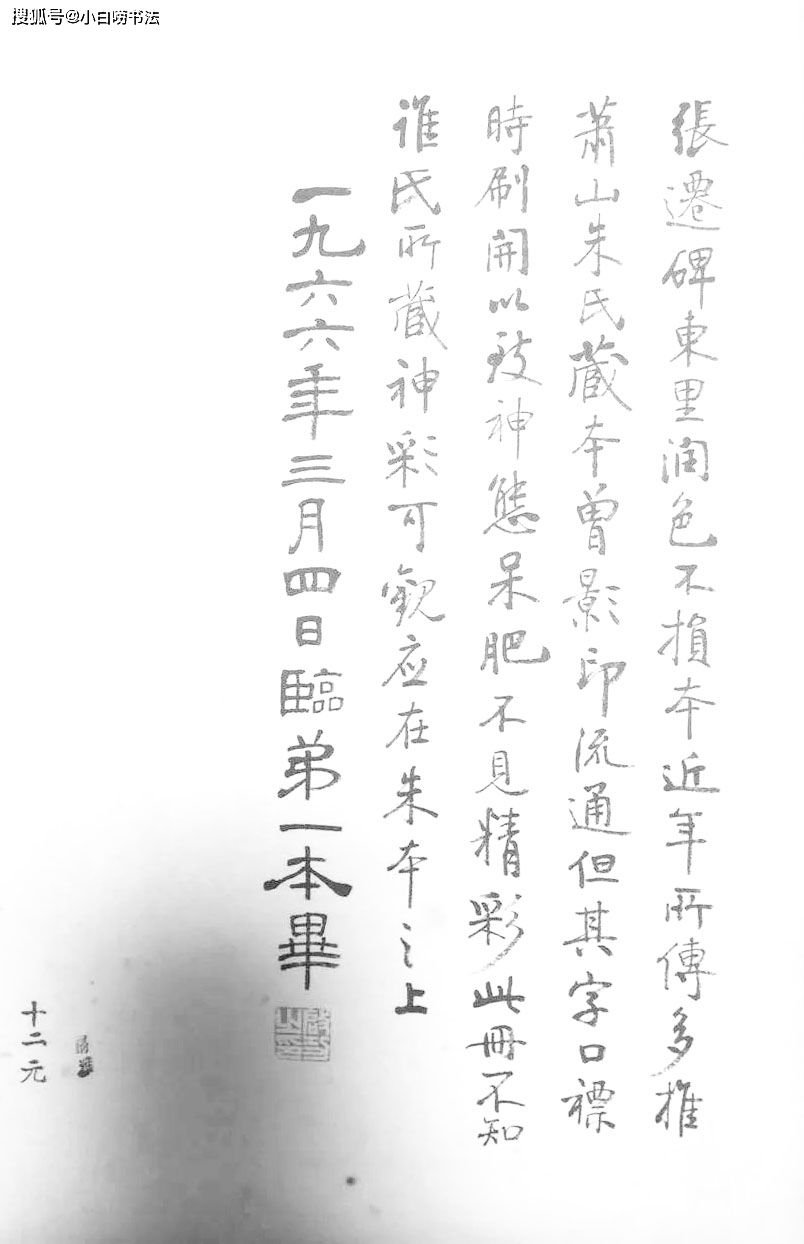 搜狐号@小白唠书法
張遷碑東里润色不損本近年所傳多推
萧山朱氏藏本曾影印流通但其字口裱
時刷開以致神態呆肥不見精彩此冊不知
誰氏所藏神彩可觀应在朱本之上
一九六六年三月四日臨弟一本畢
十二元